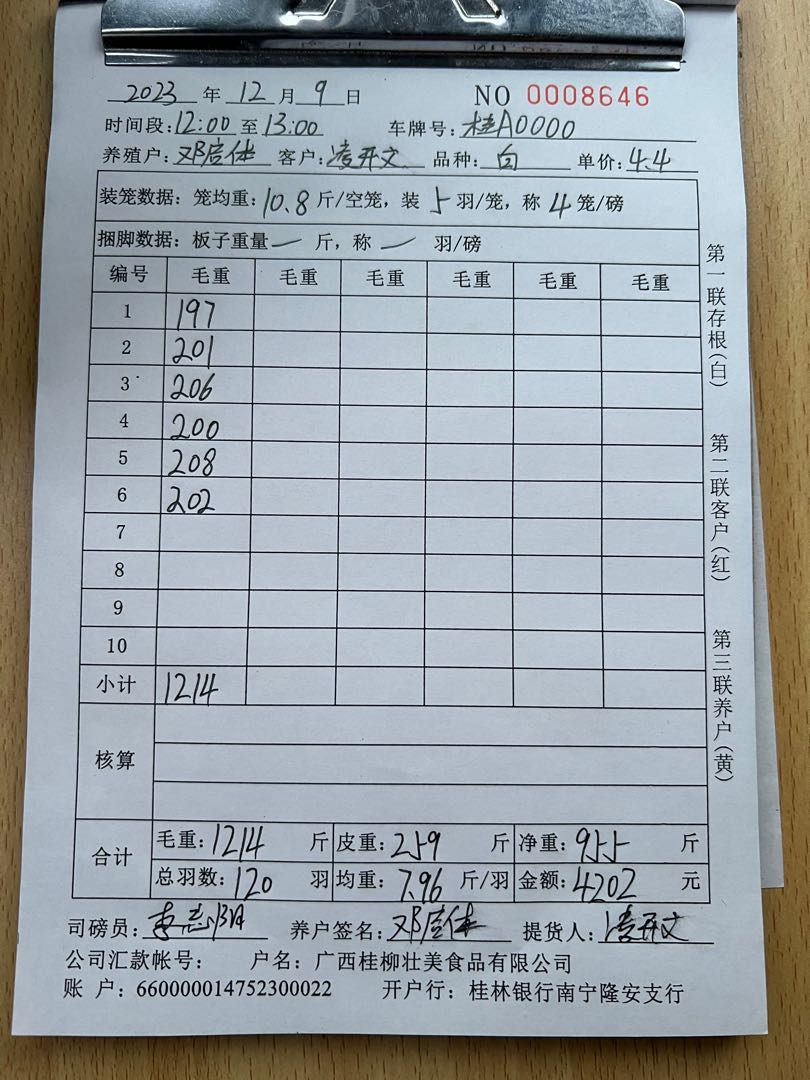 2023 年 12 月 9 日 NO 0008646
时间段: 12:00 至 13:00 车牌号: 桂A0000
养殖户: 邓启体 客户: 凌开文 品种: 白 单价: 4.4
装笼数据: 笼均重: 10.8 斤/空笼, 装 5 羽/笼, 称 4 笼/磅
捆脚数据: 板子重量 — 斤, 称 — 羽/磅
编号 毛重 毛重 毛重 毛重 毛重 毛重
1 197
2 201
3 206
4 200
5 208
6 202
7
8
9
10
小计 1214
核算
合计 毛重: 1214 斤 皮重: 259 斤 净重: 955 斤
总羽数: 120 羽 均重: 7.96 斤/羽 金额: 4202 元
司磅员: 李志 养户签名: 邓启体 提货人: 凌开文
公司汇款帐号: 户名: 广西桂柳壮美食品有限公司
账 户: 660000014752300022 开户行: 桂林银行南宁隆安支行
第一联存根(白)
第二联客户(红)
第三联养户(黄)